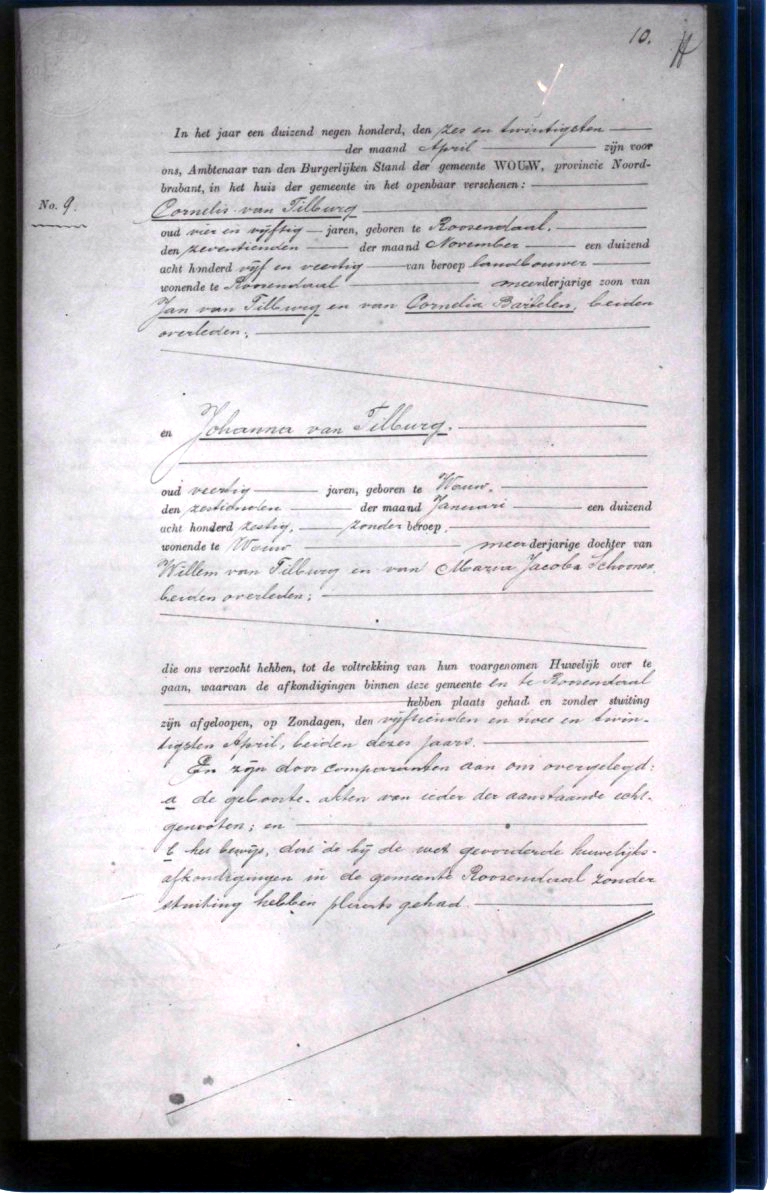 10.
In het jaar een duizend negen honderd, den zes en twintigsten
der maand April zijn voor
ons, Ambtenaar van den Burgerlijken Stand der gemeente WOUW, provincie Noord-
brabant, in het huis der gemeente in het openbaar verschenen:
No. 9.
Cornelis van Tilburg
oud vier en vijftig jaren, geboren te Roosendaal,
den zeventienden der maand November een duizend
acht honderd vijf en veertig van beroep landbouwer
wonende te Roosendaal meerderjarige zoon van
Jan van Tilburg en van Cornelia Bartelen, beiden
overleden;
en Johanna van Tilburg.
oud veertig jaren, geboren te Wouw.
den zestienden der maand Januari een duizend
acht honderd zestig, zonder beroep.
wonende te Wouw meerderjarige dochter van
Willem van Tilburg en van Maria Jacoba Schoonen
beiden overleden;
die ons verzocht hebben, tot de voltrekking van hun voorgenomen Huwelijk over te
gaan, waarvan de afkondigingen binnen deze gemeente en te Roosendaal
hebben plaats gehad en zonder stuiting
zijn afgeloopen, op Zondagen, den vijftienden en twee en twin-
tigsten April, beiden dezes jaars.
En zijn door comparanten aan ons overgelegd:
a de geboorte-akten van ieder der aanstaande echt-
genooten; en
b het bewijs, dat de bij de wet gevorderde huwelijks-
afkondigingen in de gemeente Roosendaal zonder
stuiting hebben plaats gehad.